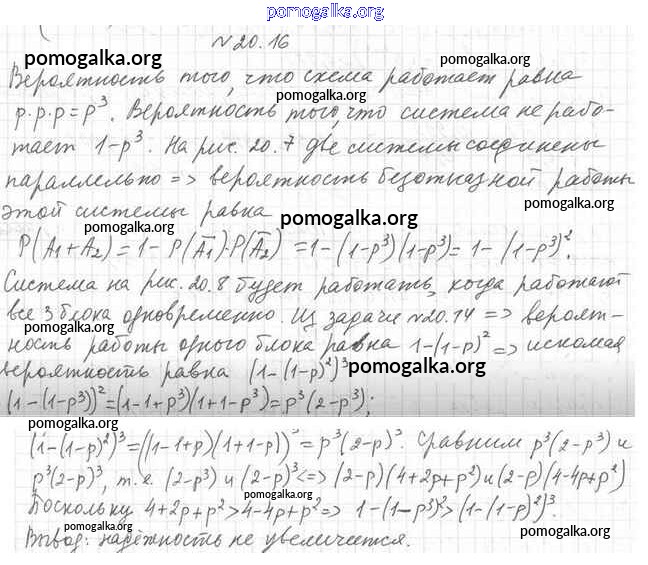 pomogalka.org
№ 20.16
pomogalka.org
pomogalka.org
Вероятность того, что схема работает равна
pomogalka.org
p·p·p=p³. Вероятность того, что система не рабо-
тает 1-p³. На рис. 20.7 две системы соединены
параллельно => вероятность безотказной работы
pomogalka.org
этой системы равна
pomogalka.org
pomogalka.org
P(A₁+A₂)=1-P(A̅₁)·P(A̅₂)=1-(1-p³)(1-p³)=1-(1-p³)².
Система на рис. 20.8 будет работать, когда работают
все 3 блока одновременно. Из задачи №20.14 => вероят-
pomogalka.org
ность работы одного блока равна 1-(1-p)² => искомая
вероятность равна (1-(1-p)²)³
pomogalka.org
(1-(1-p³))²=(1-1+p³)(1+1-p³)=p³(2-p³);
pomogalka.org
(1-(1-p)²)³=((1-1+p)(1+1-p))³=p³(2-p)³. Сравним p³(2-p³) и
p³(2-p)³, т.е. (2-p³) и (2-p)³<=>(2-p)(4+2p+p²) и (2-p)(4-4p+p²)
pomogalka.org
Поскольку 4+2p+p²>4-4p+p²=> 1-(1-p³)²>(1-(1-p)²)³.
pomogalka.org
pomogalka.org
Вывод: надёжность не увеличится.